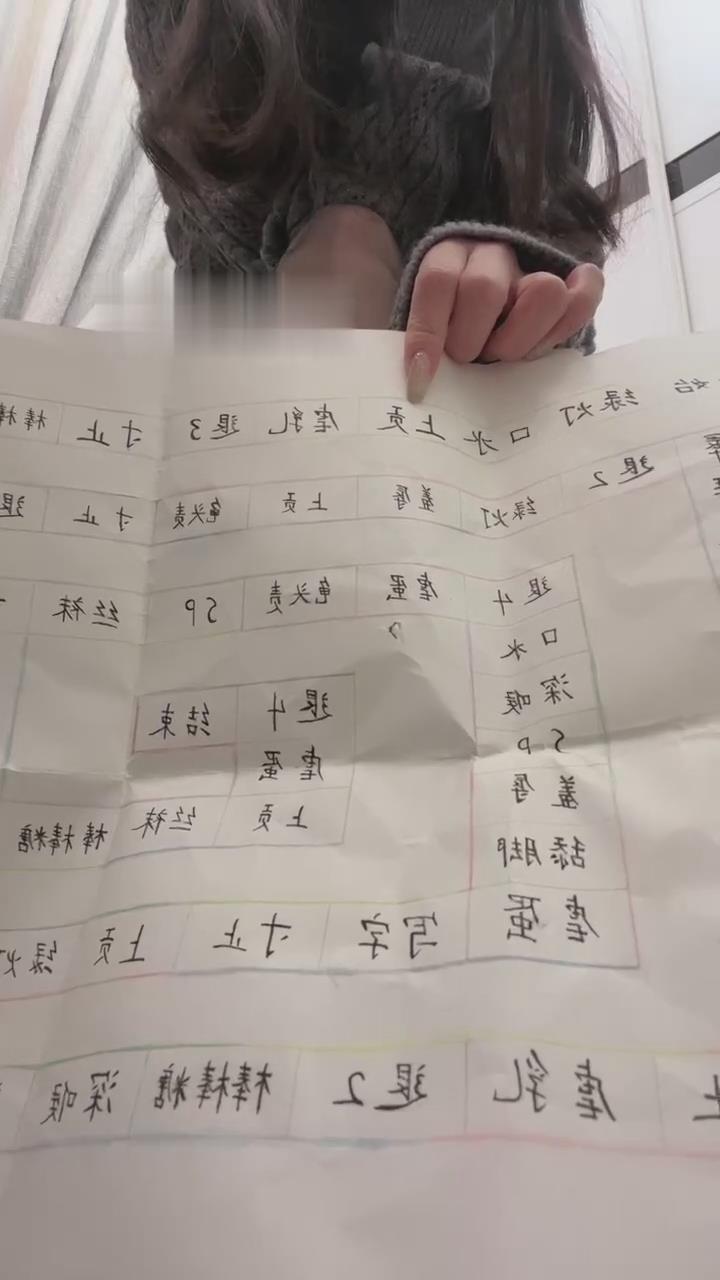 始 绿灯 口水 上贡 虐乳 退3 寸止 棒棒
退2 绿灯 羞辱 上贡 龟头责 寸止 退
退4 虐蛋 龟头责 SP 丝袜
口水
深喉 退4 结束
SP 虐蛋
羞辱 上贡 丝袜 棒棒糖
舔脚
虐蛋 写字 寸止 上贡 绿灯
止 虐乳 退2 棒棒糖 深喉